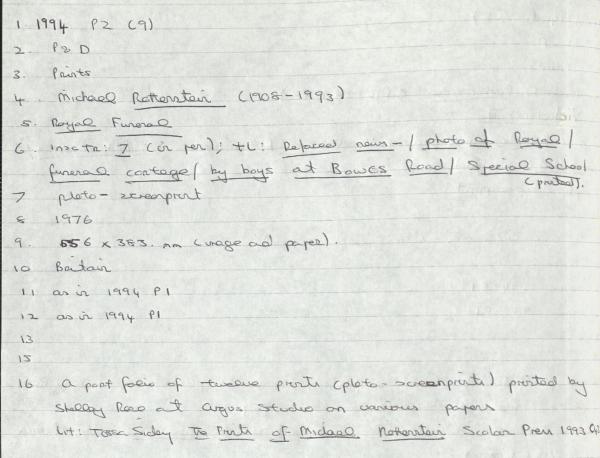 1 1994 P2 (9)
2. P & D
3. Prints
4. Michael Rothenstein (1908-1993)
5. Royal Funeral
6 Inscr: 7 (in pen); t L: Defaced news-/ photo of Royal/
funeral cortage/ by boys at Bowes Road/ Special School
(printed).
7 photo-screenprint
8 1976
9. 556 x 383. mm (image and paper).
10 Britain
11 as in 1994 P1
12 as in 1994 P1
13
15
16 A portfolio of twelve prints (photo-screenprints) printed by
Shelley Rose at Argus Studio on various papers
Lit: Tessa Sidey The Prints of Michael Rothenstein Scolar Press 1993